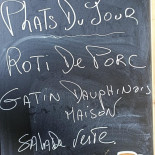 PLATS DU JOUR
ROTI DE PORC
GATIN DAUPHINOIS
MAISON
SALADE VERTE